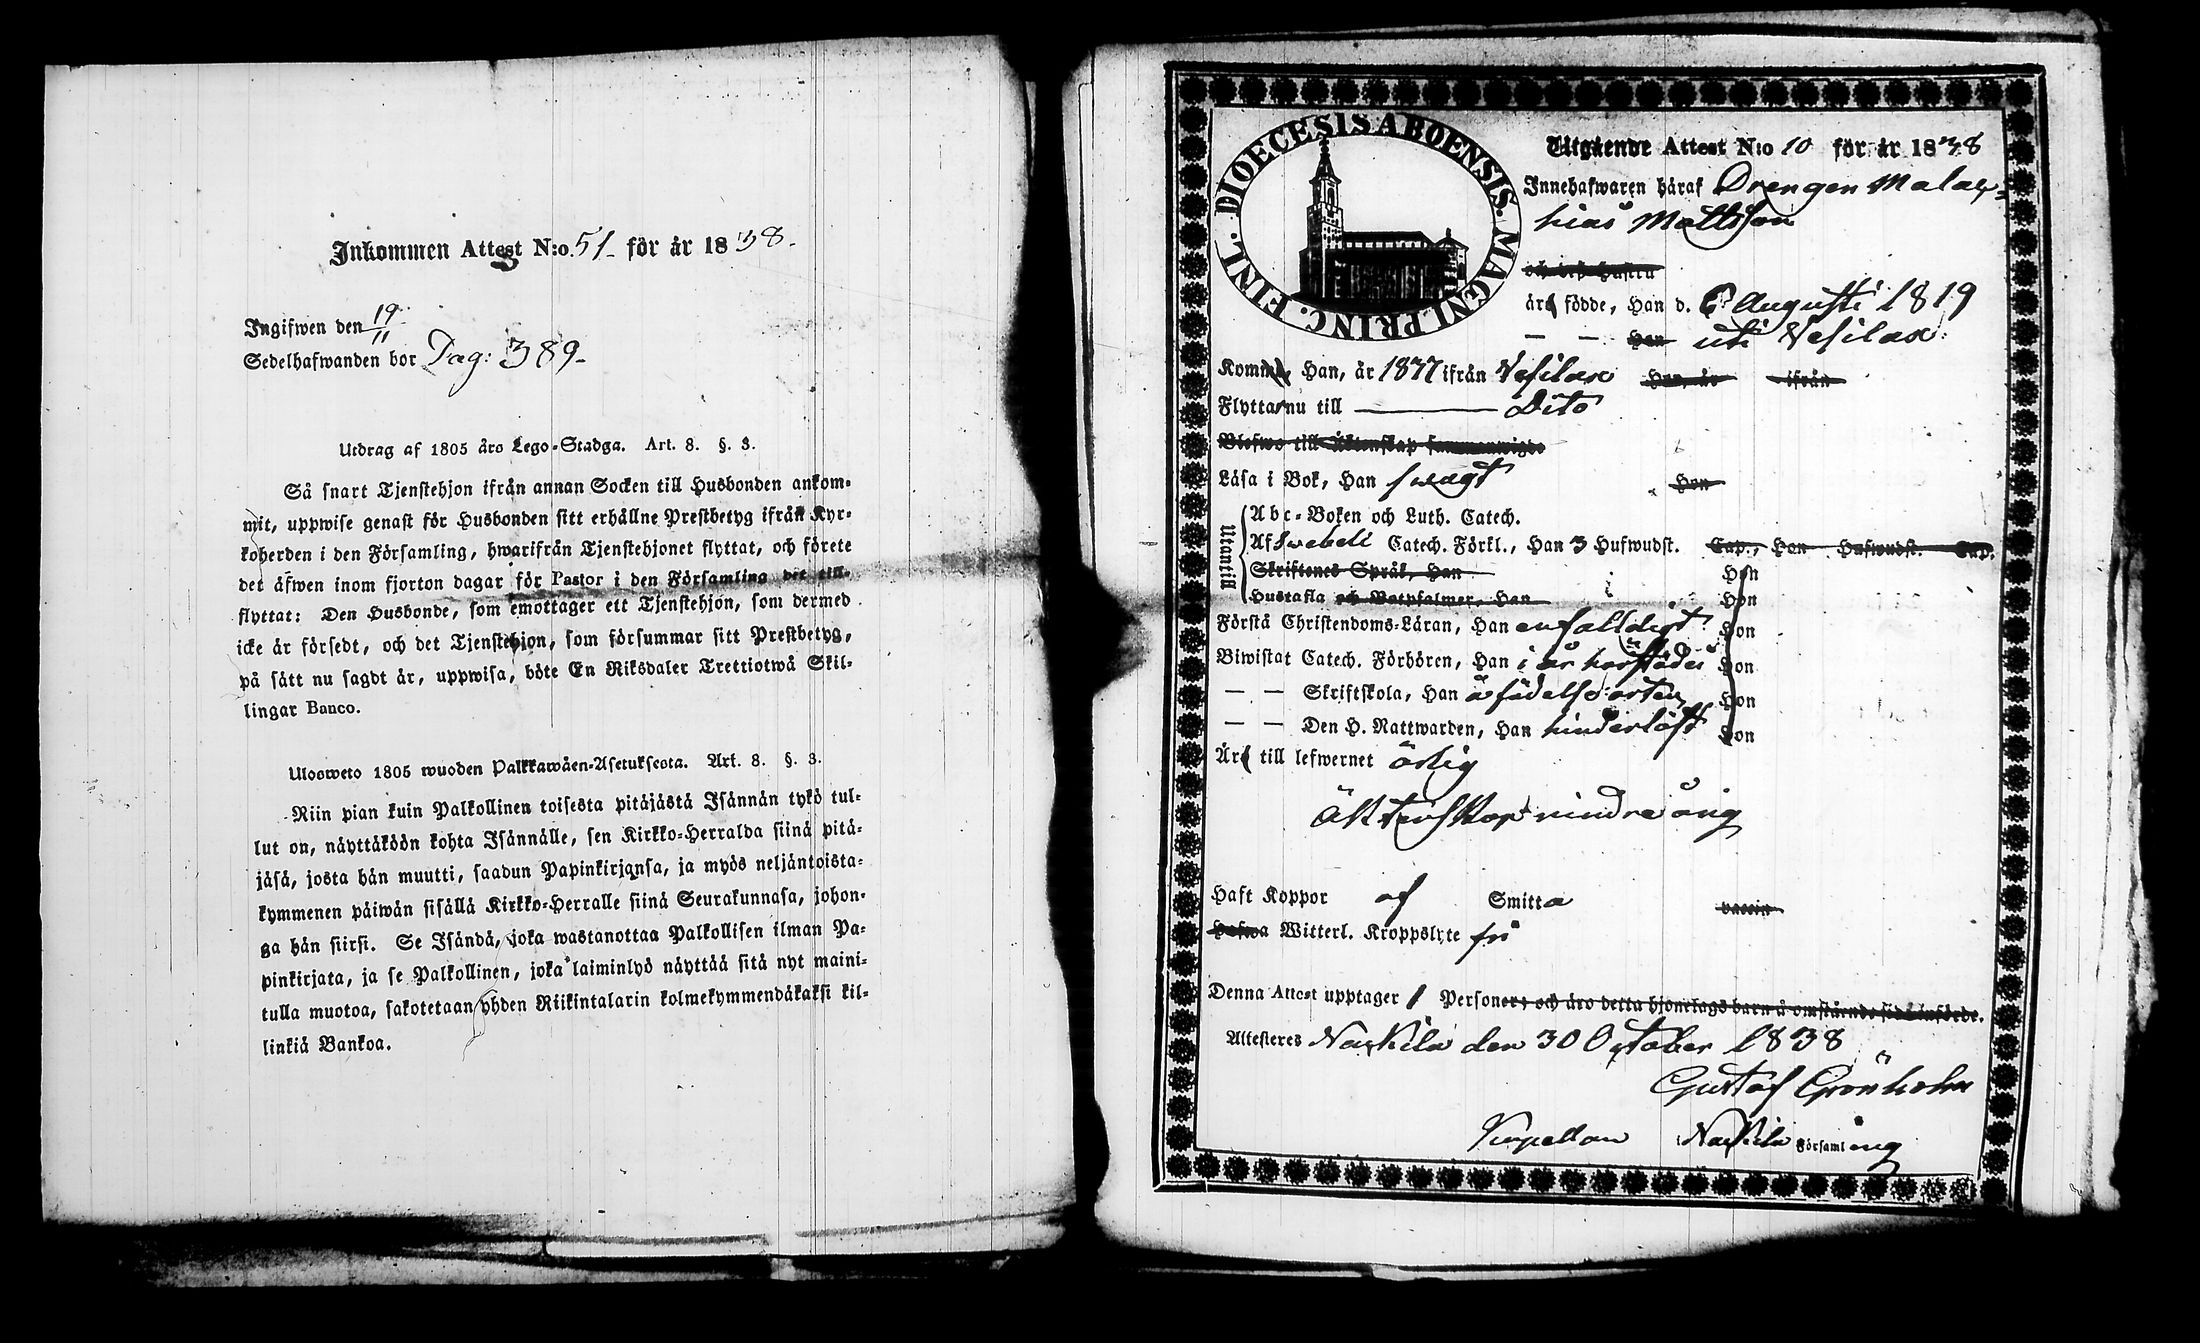 Inkommen Attest N:o. 51 för år 1838.
Ingifwen den 19/11
Sedelhafwanden bor Pag: 389
Utdrag af 1805 års Lego-Stadga. Art. 8. §. 3.
Så snart Tjenstehjon ifrån annan Socken till Husbonden ankom-
mit, uppwise genast för Husbonden sitt erhållne Prestbetyg ifrån Kyr-
koherden i den Församling, hwarifrån Tjenstehjonet flyttat, och förete
det äfwen inom fjorton dagar för Pastor i den Församling det till-
flyttat: Den Husbonde, som emottager ett Tjenstehjon, som dermed
icke är försedt, och det Tjenstehjon, som försummar sitt Prestbetyg,
på sätt nu sagdt är, uppwisa, böte En Riksdaler Trettiotwå Skil-
lingar Banco.
Ulosweto 1805 wuoden Palkkawäen-Asetuksesta. Art. 8. §. 3.
Niin pian kuin Palkollinen toisesta pitäjästä Isännän tykö tul-
lut on, näyttäköön kohta Isännälle, sen Kirkko-Herralda siinä pitä-
jäsä, josta hän muutti, saadun Papinkirjansa, ja myös neljäntoista-
kymmenen päiwän sisällä Kirkko-Herralle siinä Seurakunnasa, johon-
ga hän siirsi. Se Isändä, joka wastanottaa Palkollisen ilman Pa-
pinkirjata, ja se Palkollinen, joka laiminlyö näyttää sitä nyt maini-
tulla muotoa, sakotetaan yhden Riikintalarin kolmekymmendäkaksi kil-
linkiä Bankoa.
DIOECESIS ABOENSIS. MAGNI PRINC. FINL.
Utgående Attest N:o 10 för år 1838
Innehafwaren häraf Drengen Malac-
hias Mattsson
och des Hustru
äro födde, Han d. 6 Augusti 1819
— — Hon uti Vesilax
Kommo, Han, år 1837 ifrån Vesilax Hon, år ifrån
Flytta nu till Dito
Blefwo till Äktenskap sammanwigde
Läsa i Bok, Han swagt Hon
Utantill
Abc-Boken och Luth. Catech.
Af Svebeli Catech. Förkl., Han 3 Hufwudst. Cap., Hon Hufwudst. Cap.
Skriftenes Språk, Han Hon
Hustafla och Botpsalmer, Han Hon
Förstå Christendoms-Läran, Han enfalldigt Hon
Biwistat Catech. Förhören, Han i år härstädes Hon
— — Skriftskola, Han å födelse orten Hon
— — Den H. Nattwarden, Han hinderlöst Hon
Äro till lefwernet ärlig
Äktenskap mindre årig
Haft Koppor af Smitta vaccin
Hafwa Witterl. Kroppslyte fri
Denna Attest upptager 1 Personer, och äro detta hjonelags barn å omstående sida införde.
Attesteres Nackila den 30 October 1838
Gustaf Grönholm
Capellan Nackila Församling